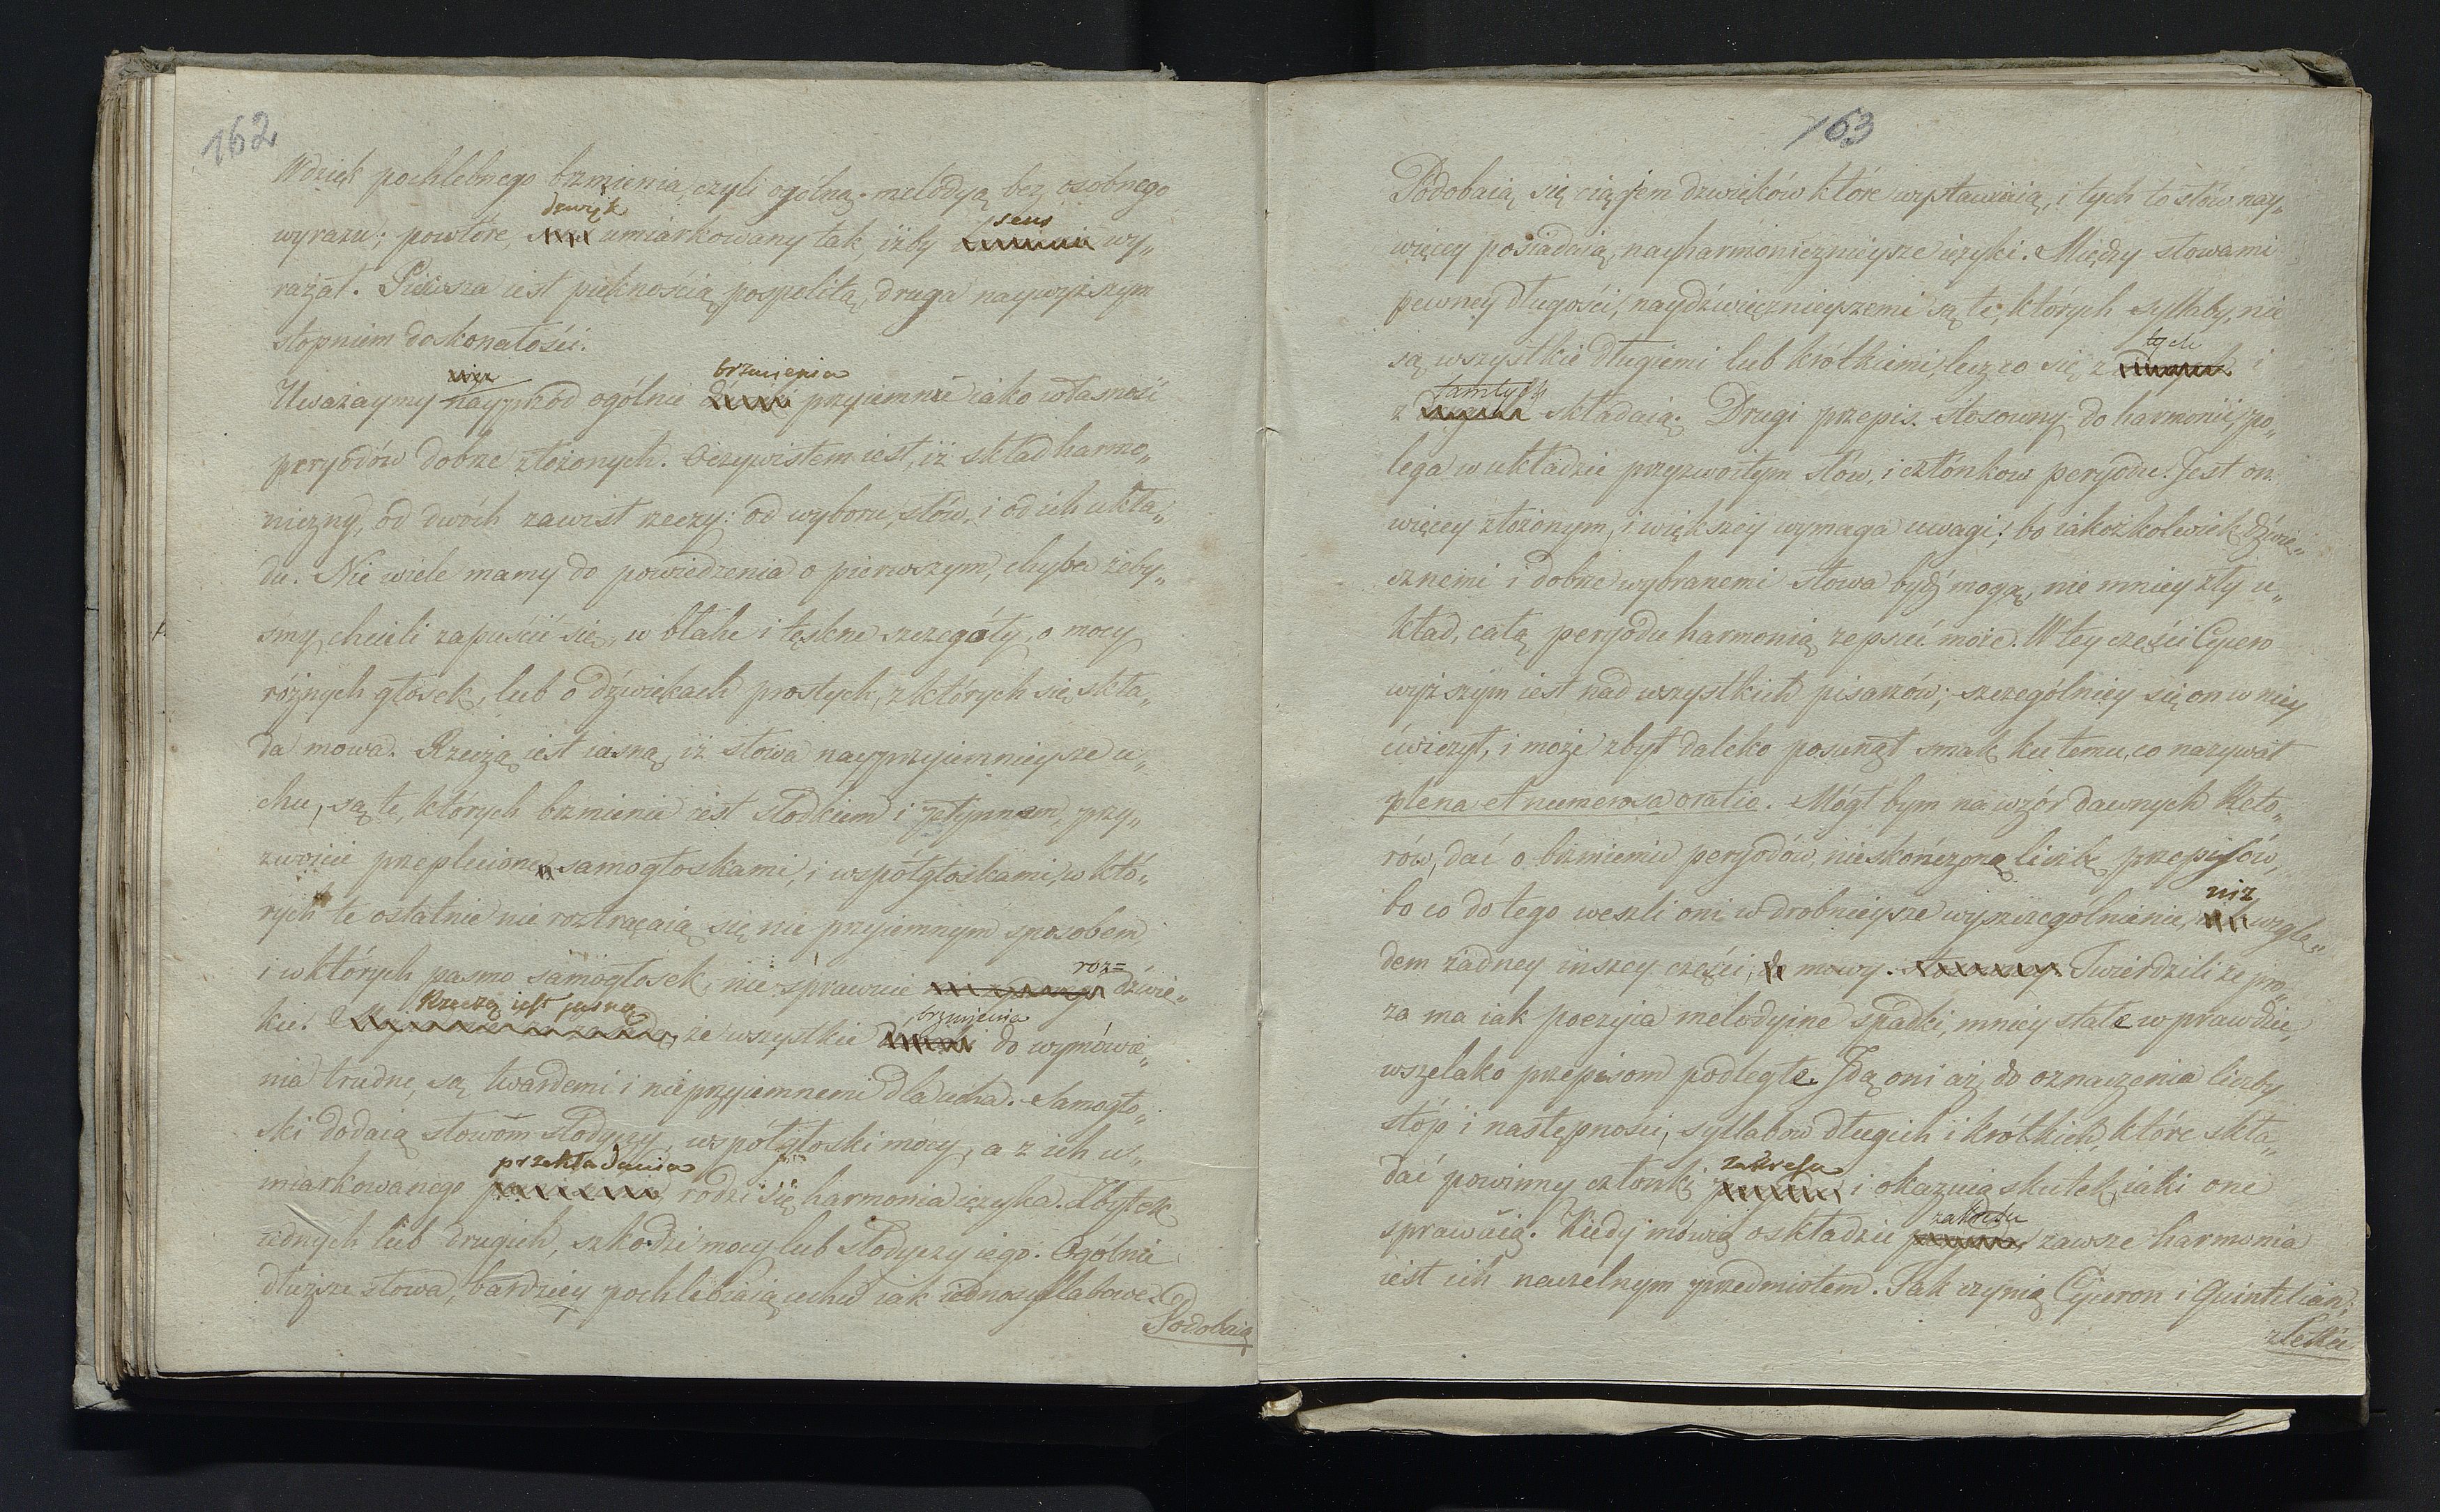 162
Wdzięk pochlebnego brzmienia, czyli ogólną melodyą bez osóbnego
dzwięk sens
wyrazu; powtóre, umiarkowany tak, iżby wy„
rażał. Pierwsza iest pięknością pospolitą, druga naywyższym
stopniem doskonałości.
więc brzmienia
Uważaymy nayprzód ogólnie przyiemnie iako własność
peryodów dobrze złożonych. Oczywistem iest, iż skład harmo„
niczny, od dwóch zawisł rzeczy: od wyboru słów, i od ich ukła„
du. Nie wiele mamy do powiedzenia o pierwszym, chyba żeby„
smy chcieli zapuścić się, w błahe i tęskne szczegóły, o mocy
różnych głosek, lub o dźwiękach prostych, z których się skła„
da mowa. Rzeczą iest iasną, iż słowa nayprzyiemnieysze u„
chu, są te, których brzmienie iest słodkiem i płynnem, przy„
zwoicie przeplecione samogłoskami, i współgłoskami, w któ„
rych te ostatnie nie roztrącaią się nie przyiemnym sposobem,
i w których pasmo samogłosek, nie sprawuie roz= dźwię„
Rzeczą iest jasną brzmienia
ku. że wszystkie do wymówie„
nia trudne, są twardemi i nieprzyiemnemi dla ucha. Samogło„
ski dodaią słowom słodyczy, współgłoski mocy, a z ich u„
przekładania
miarkowanego rodzi się harmonia ięzyka. Zbytek
iednych lub drugich, szkodzi mocy lub słodyczy iego. Ogólnie
dłuższe słowa, bardziey pochlebiaią uchu iak iednosyllabowe.
Podobaią
163
Podobaią się ciągiem dzwięków które wystawiaią, i tych to słów nay„
więcey posiadaią, nayharmonicznieysze ięzyki. Między słowami
pewney długości, naydźwięcznieyszemi są te, których syllaby, nie
tych
są wszystkie długiemi lub krótkiemi, lecz co się z i
tamtych
z składaią. Drugi przepis stosowny do harmonii, po„
lega w układzie przyzwoitym słow, i członkow peryodu. Jest on
więcey złożonym, i większey wymaga uwagi; bo iakożkolwiek dźwię„
cznemi i dobrze wybranemi słowa bydź mogą, nie mniey zły u„
kład, całą peryodu harmonią zepsuć może. W tey części Cycero
wyższym iest nad wszystkich pisarzów; szczególniey się on w niey
ćwiczył, i może zbyt daleko posunął smak ku temu, co nazywał
plena et numerosa oratio. Mógł bym na wzór dawnych Reto„
rów, dać o brzmieniu peryodów, nieskończoną liczbę przepisów,
niż
bo co do tego weszli oni w drobnieysze wyszczególnienie, wzglę„
dem żadney inszey części, mowy. Twierdzili że pro„
za ma iak poezyia melodyine spadki, mniey stałe wprawdzie,
wszelako przepisom podległe. Idą oni aż do oznaczenia liczby
stóp i następności, syllabow długich i krótkich, które skła„
zakresu
dać powinny członki i okazuią skutek, iaki one
zakresu
sprawuią. Kiedy mówią o składzie zawsze harmonia
iest ich naczelnym przedmiotem. Tak czynią Cyceron i Quintilian;